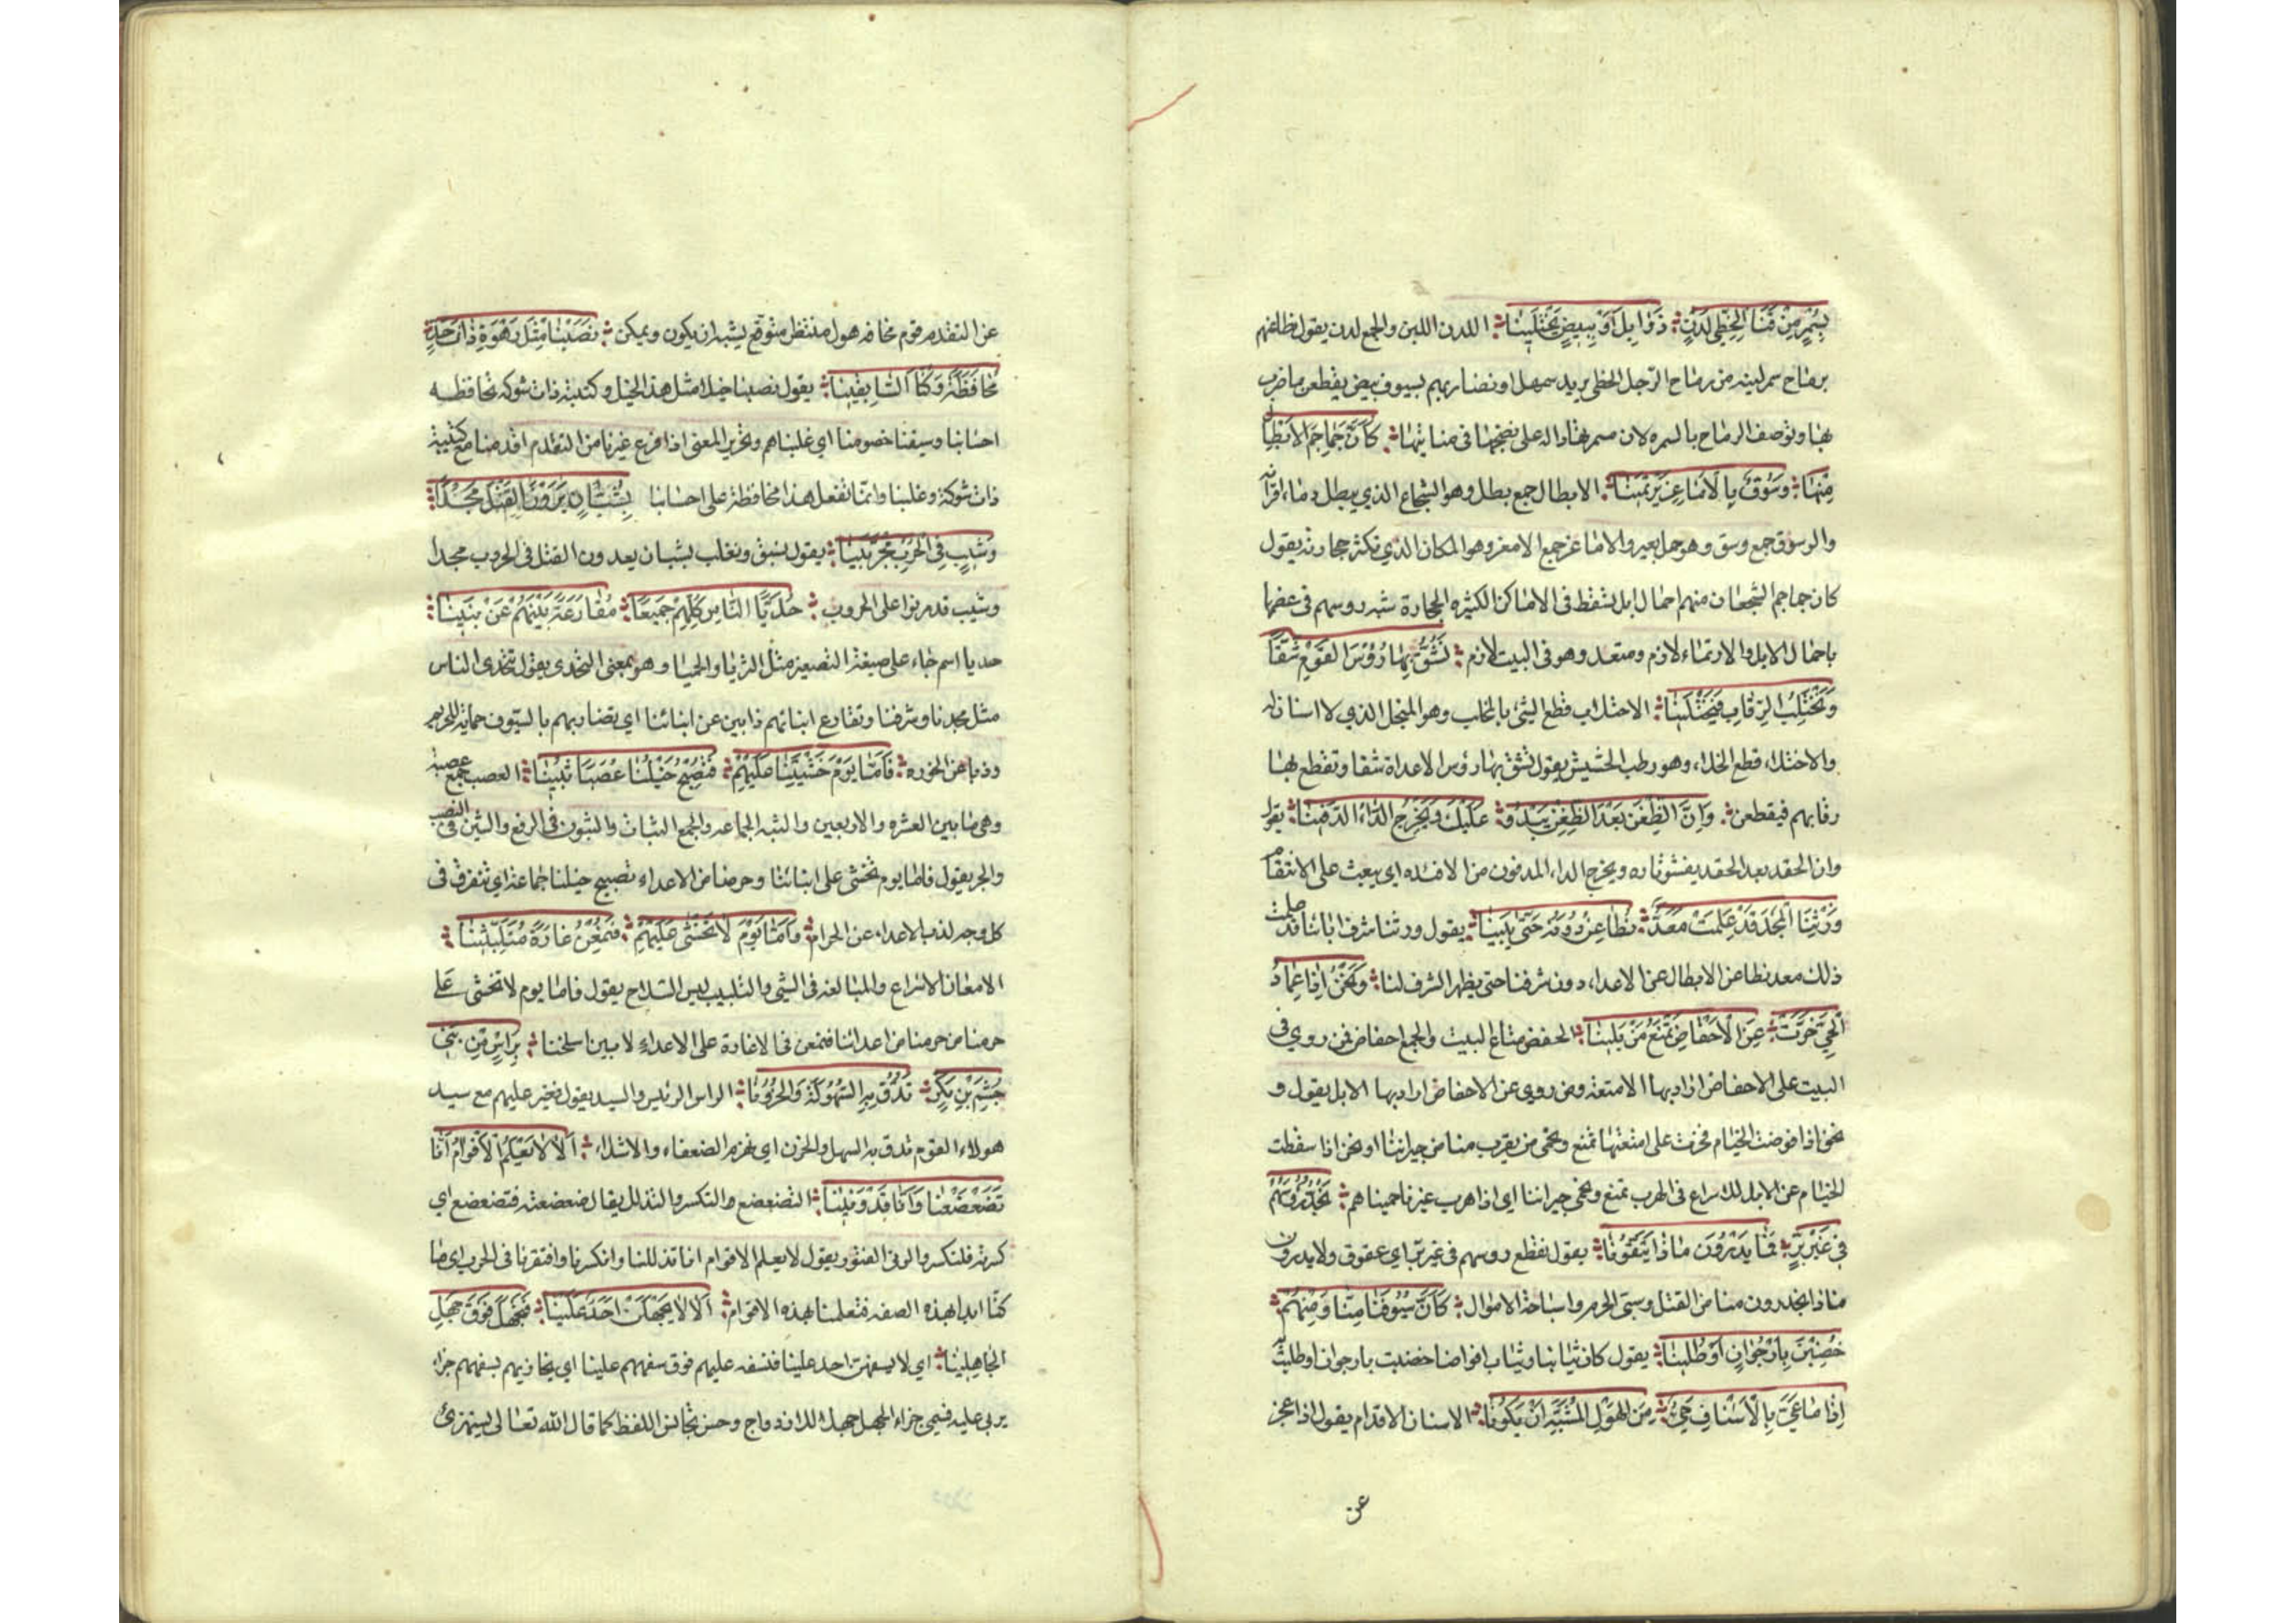 بِسُمْرٍ مِنْ قَنَا الْخَطِّيِّ لُدْنٍ ذَوَابِلَ أَوْ بِبِيضٍ يَخْتَلِينَا اللدن اللين والجمع لدن يقول نطاعنهم
برماح سمر لينه من رماح الرجل الخطي يريد سمهل او نضاربهم بسيوف بيض يقطعن ما ضرب
بها وتوصف الرماح بالسمره لان سمرتها داله على نضجها في منابتها كَأَنَّ جَمَاجِمَ الأَبْطَالِ
مِنْهَا وُسُوقٌ بِالأَمَاعِزِ يَرْتَمِينَا الابطال جمع بطل وهو الشجاع الذي يبطل دماء اقرانه
والوسوق جمع وسق وهو حمل بعير والاماعز جمع الامعز وهو المكان الذي تكثر حجارته يقول
كان جماجم الشجعان منهم احمال ابل تسقط في الاماكن الكثيره الحجارة شبه روسهم في عظمها
باحمال الابل والارتماء لازم ومتعد وهو في البيت لازم نَشُقُّ بِهَا رُؤُسَ القَوْمِ شَقًّا
وَنَخْتَلِبُ الرِّقَابَ فَيَخْتَلِينَا الاختلاب قطع الشئ بالمخلب وهو المنجل الذي لا اسنان له
والاختلاء قطع الخلاء وهو رطب الحشيش يقول نشق بها رؤس الاعداء شقا ونقطع بها
رقابهم فيقطعن وَاِنَّ الضِّغْنَ بَعْدَ الضِّغْنِ يَبْدُو عَلَيْكَ وَيُخْرِجُ الدَّاءَ الدَّفِينَا يقول
وان الحقد بعد الحقد يفشو ناره ويخرج الداء المدفون من الافئده اي يبعث على الانتقام
وَرِثْنَا الْمَجْدَ قَدْ عَلِمَتْ مَعَدٌّ نُطَاعِنُ دُونَهُ حَتَّى يَبِينَا يقول ورثنا شرف ابائنا قد علمت
ذلك معد نطاعن الابطال عن الاعداء دون شرفنا حتى يظهر الشرف لنا وَنَحْنُ اِذَا عِمَادُ
الْحَيِّ خَرَّتْ عَنِ الأَحْفَاضِ نَمْنَعُ مَنْ يَلِينَا الحفض متاع البيت والجمع احفاض فمن روي في
البيت على الاحفاض اراد بها الامتعة ومن روي عن الاحفاض اراد بها الابل يقول و
نحن اذا قوضت الخيام فخرت على امتعتها نمنع ونحمي من يقرب منا من جيراننا او نحن اذا سقطت
الخيام عن الابل للاسراع في الهرب نمنع ونحمي جيراننا اي اذا هرب غيرنا حميناهم نَجُذُّ رُؤُسَهُمْ
فِي غَيْرِ بِرٍّ فَمَا يَدْرُونَ مَاذَا يَتَّقُونَا يقول نقطع روسهم في غير بر اي عقوق ولا يدرون
ماذا يحذرون منا من القتل وسبي الحرم واستباحة الاموال كَأَنَّ سُيُوفَنَا مِنَّا وَمِنْهُمْ
خُضِبْنَ بِاُرْجُوَانٍ اَوْ طُلِينَا يقول كان ثيابنا وثياب اقراننا خضبت بارجوان او طليت
اِذَا مَا عَيَّ بِالأَسْنَافِ حَيٌّ مِنَ الْهَوْلِ الْمُشَبَّهِ اَنْ يَكُونَا الاسناف الاقدام يقول اذا عجز
عن
عن التقدم قوم مخافه هول منتظر متوقع يشبه ان يكون ويمكن نَصَبْنَا مِثْلَ رَهْوَةَ ذَاتَ حَدٍّ
مُحَافَظَةً وَكُنَّا السَّابِقِينَا يقول نصبنا خيلا مثل هذا الجبل وكتيبة ذات شوكه محافظه
احسابنا وسبقنا خصومنا اي غلبناهم وتحرير المعنى اذا فزع غيرنا من التقدم اقدمنا مع كتيبة
ذات شوكة وغلبنا وانما نفعل هذا محافظة على احسابنا بِشُبَّانٍ يَرَوْنَ القَتْلَ مَجْدًا
وَشِيبٍ فِي الْحُرُوبِ مُجَرَّبِينَا يقول نسبق ونغلب بشبان يعدون القتل في الحروب مجدا
وشيب قد مرنوا على الحروب حُدَيَّا النَّاسِ كُلِّهِمْ جَمِيعًا مُقَارَعَةً بَنِيهُمْ عَنْ بَنِينَا
حديا اسم جاء على صيغة التصغير مثل الثريا والحميا وهو بمعنى التحدي يقول نتحدى الناس
مثل مجدنا وشرفنا ونقارع ابنائهم ذابين عن ابنائنا اي نضاربهم بالسيوف حماية للحريم
وذبا عن الحوزه فَاَمَّا يَوْمَ خَشْيَتِنَا عَلَيْهِمْ فَتُصْبِحُ خَيْلُنَا عُصَبًا ثُبِينَا العصب جمع عصبة
وهي ما بين العشره والاربعين والثبه الجماعه والجمع الثبات والثبون في الرفع والثبين في النصب
والجر يقول فاما يوم نخشى على ابنائنا وحرمنا من الاعداء تصبح خيلنا جماعة اي تتفرق في
كل وجه لذب الاعداء عن الحرام وَاَمَّا يَوْمَ لا نَخْشَى عَلَيْهِمْ فَنُمْعِنُ غَارَةً مُتَلَبِّبِينَا
الامعان الاسراع والمبالغه في الشي والتلبيب لبس السلاح يقول فاما يوم لا نخشى على
حرمنا من اعدائنا فنمعن في الاغارة على الاعداء لابسين اسلحتنا بِرَأْسٍ مِنْ بَنِي
جُشَمِ بْنِ بَكْرٍ نَدُقُّ بِهِ السُّهُولَةَ وَالْحُزُونَا الراس الرئيس والسيد يقول نغير عليهم مع سيد
هولاء القوم ندق به السهل والحزن اي نهزم الضعفاء والاشداء اَلا لا يَعْلَمُ الأَقْوَامُ اَنَّا
تَضَعْضَعْنَا وَاَنَّا قَدْ وَنِينَا التضعضع والتكسر والتذلل يقال ضعضعته فتضعضع اي
كسرته فانكسر والونى الفتور يقول لا يعلم الاقوام اننا تذللنا وانكسرنا وافتقرنا في الحرب اي ما
كنا ابدا بهذه الصفه فتعلمنا بهذه الاقوام اَلا لا يَجْهَلَنْ اَحَدٌ عَلَيْنَا فَنَجْهَلَ فَوْقَ جَهْلِ
الْجَاهِلِينَا اي لا يسفهن احد علينا فنسفه عليهم فوق سفههم علينا اي نجازيهم بسفههم جزاء
يربي عليه فسمي جزاء الجهل جهلا للازدواج وحسن تجانس اللفظ كما قال الله تعالى يستهزئ